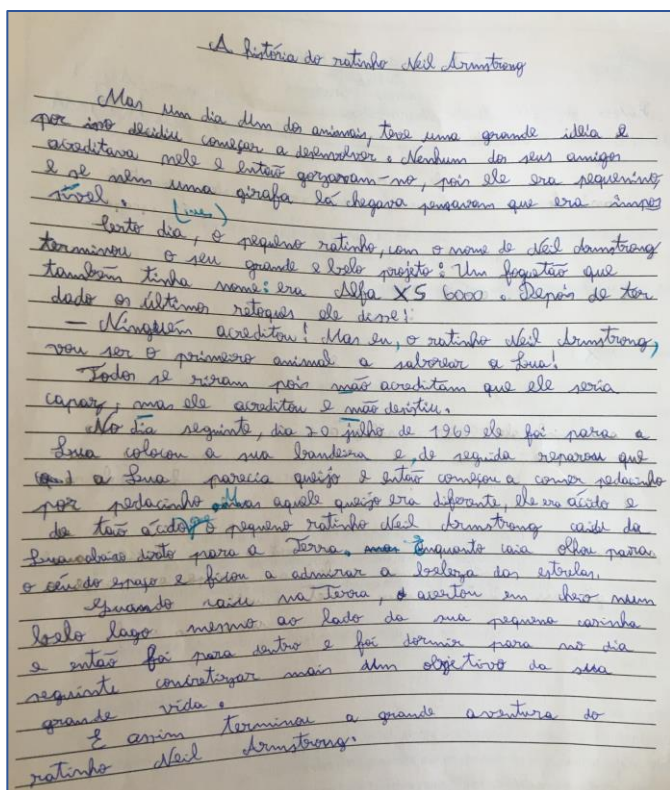 A história do ratinho Neil Armstrong
Mas um dia dum dos animais, teve uma grande ideia e
por isso decidiu começar a desenvolver. Nenhum dos seus amigos
acreditava nele e então gozavam-no, pois ele era pequenino,
e se nem uma girafa lá chegava pensavam que era impos
sível.
Certo dia, o pequeno ratinho, com o nome de Neil Armstrong
terminou o seu grande e belo projeto: Um foguetão que
também tinha nome: era Alfa XS 6000. Depois de ter
dado os últimos retoques ele disse!:
— Ninguém acreditou! Mas eu, o ratinho Neil Armstrong,
vou ser o primeiro animal a saborear a Lua!
Todos se riram pois não acreditam que ele seria
capaz, mas ele acreditou e não desistiu.
No dia seguinte, dia 20 julho de 1969 ele foi para a
Lua colocou a sua bandeira e, de seguida reparou que
a Lua parecia queijo e então começou a comer pedacinho
por pedacinho mas aquele queijo era diferente, ele era ácido e
de tão ácido o pequeno ratinho Neil Armstrong caiu da
Lua abaixo direto para a Terra. Enquanto caia olhou para
o céu do espaço e ficou a admirar a beleza das estrelas.
Quando caiu na Terra, acertou em cheio num
belo lago mesmo ao lado da sua pequena casinha
e então foi para dentro e foi dormir para no dia
seguinte concretizar mais um objetivo da sua
grande vida.
E assim terminou a grande aventura do
ratinho Neil Armstrong.